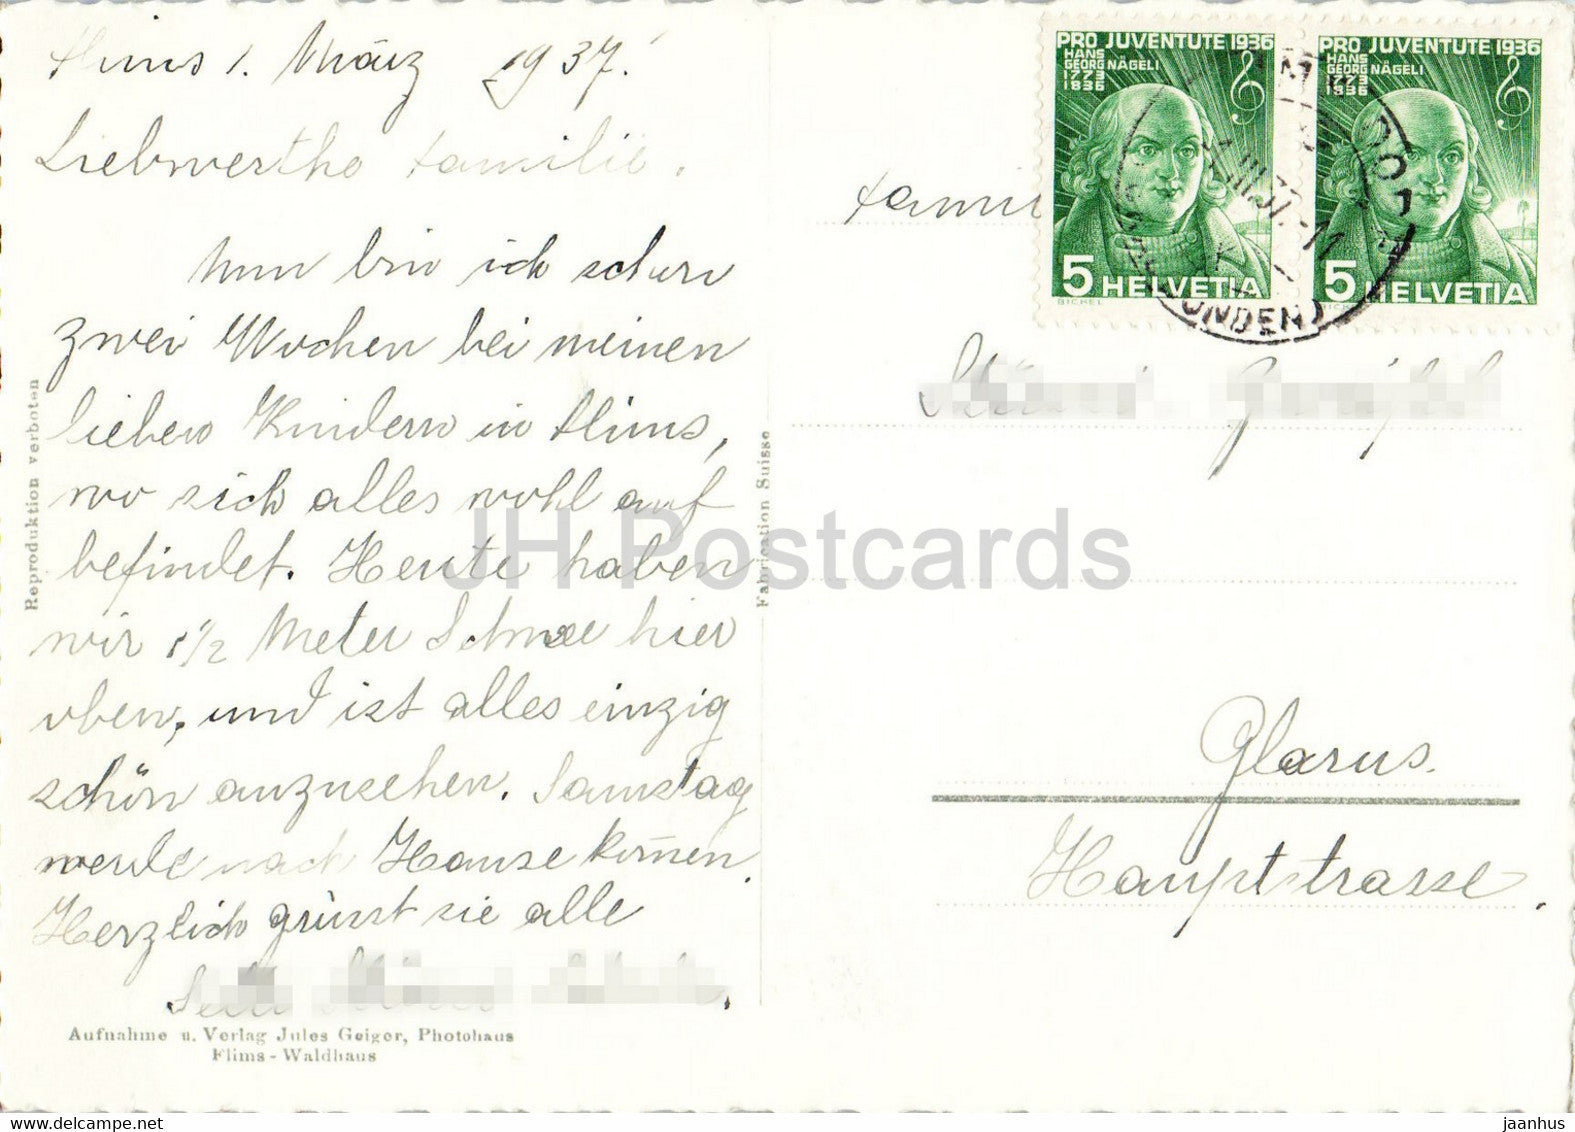 Flims 1. März 1937.
Liebwerthe Familie.
Nun bin ich schon
zwei Wochen bei meinen
lieben Kindern in Flims,
wo sich alles wohl auf
befindet. Heute haben
wir 1 1/2 Meter Schnee hier
oben, und ist alles einzig
schön anzusehen. Samstag
werde nach Hause kom̅en.
Herzlich grüsst sie alle
Aufnahme u. Verlag Jules Geiger, Photohaus
Flims - Waldhaus
Reproduktion verboten
Fabrication Suisse
PRO JUVENTUTE 1936
HANS
GEORG NÄGELI
1773
1836
5 HELVETIA
BICKEL
PRO JUVENTUTE 1936
HANS
GEORG NÄGELI
1773
1836
5 HELVETIA
Glarus.
Hauptstrasse.
JH Postcards
www.delcampe.net
jaanhus